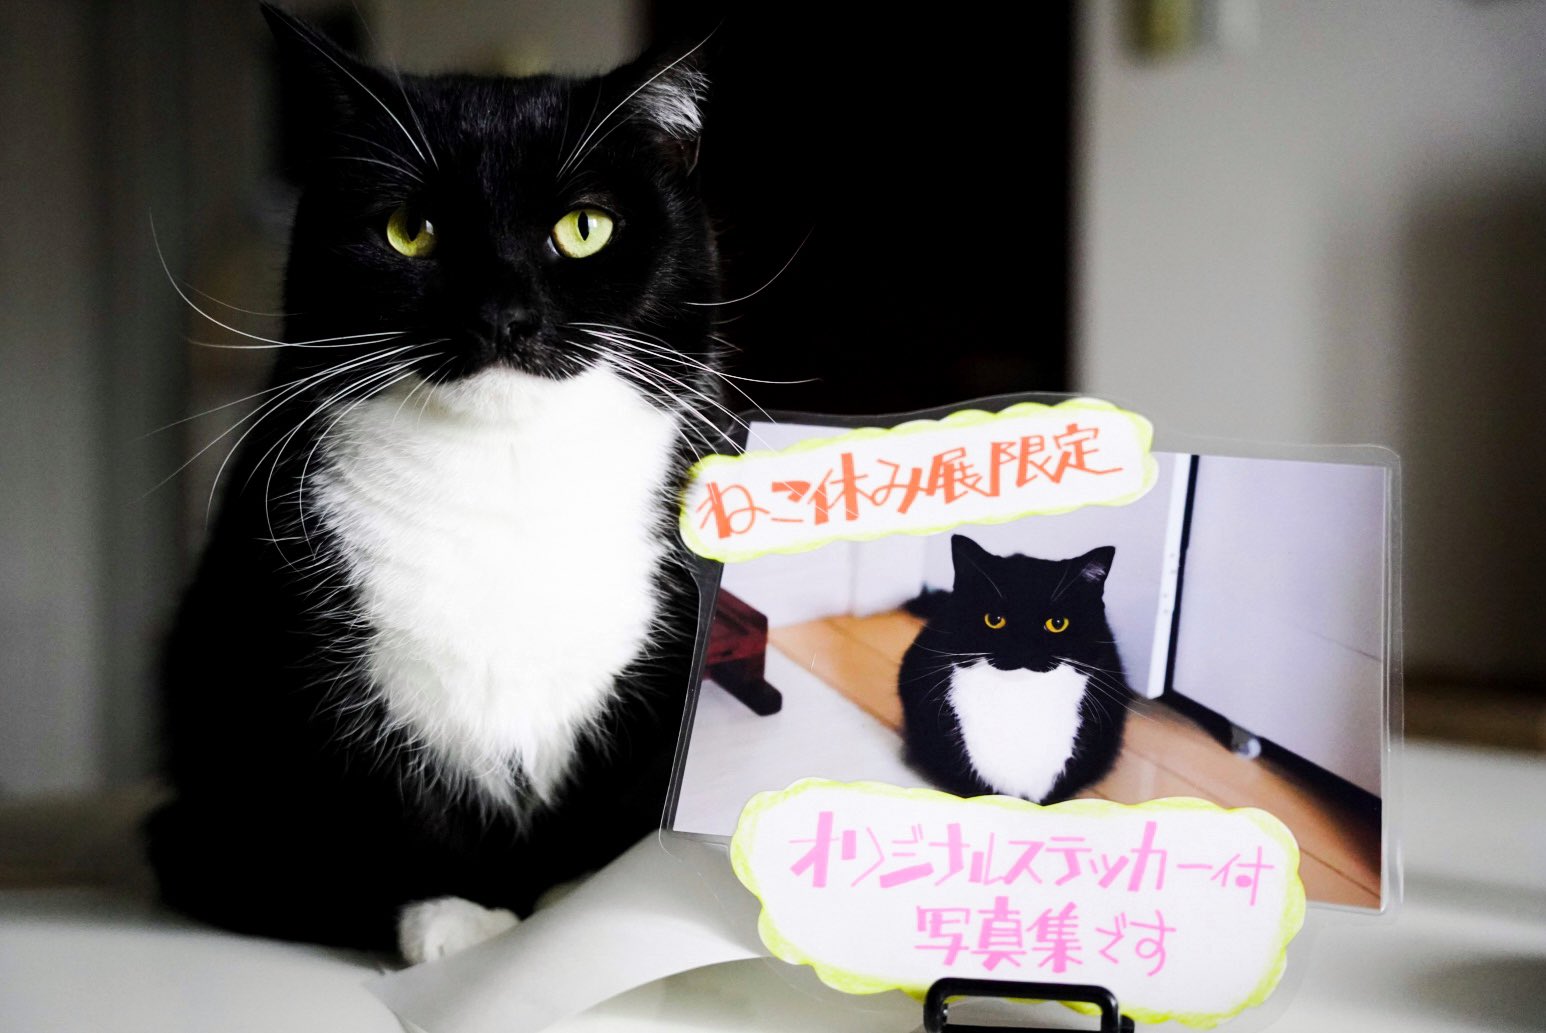 ねこ休み展限定
オリジナルステッカー付
写真集です